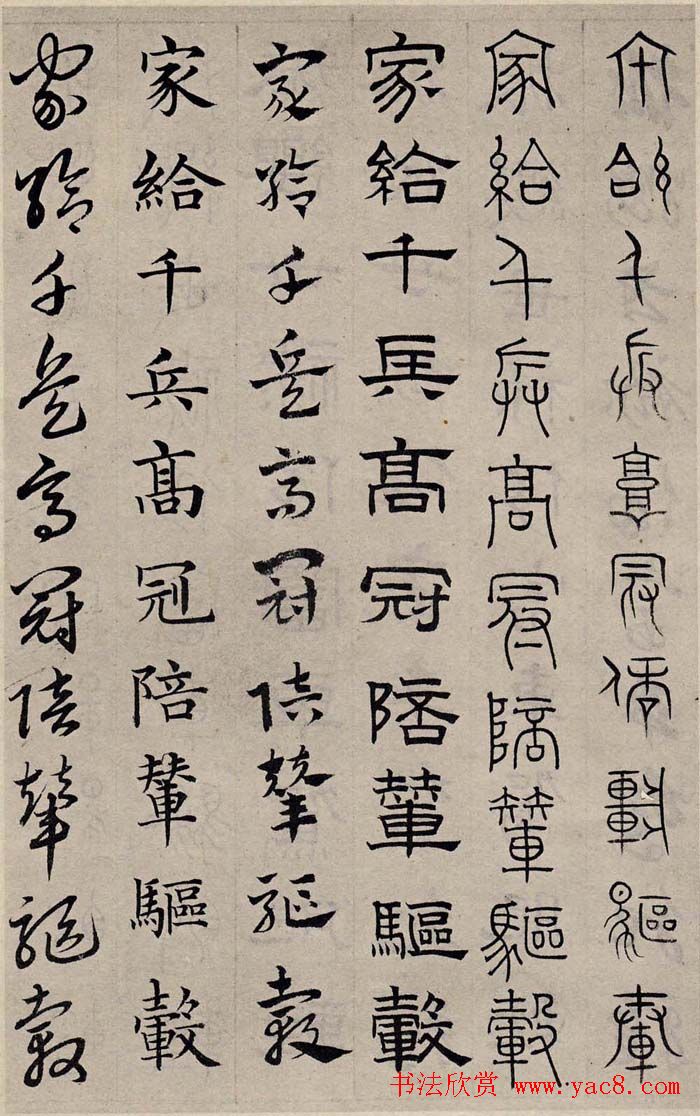 家給千兵高冠陪輦驅轂
家給千兵高冠陪輦驅轂
家給千兵髙冠陪輦驅轂
家給千兵高冠陪輦驅轂
家給千兵髙冠陪輦驅轂
家給千兵高冠陪輦驅轂
书法欣赏 www.yac8.com